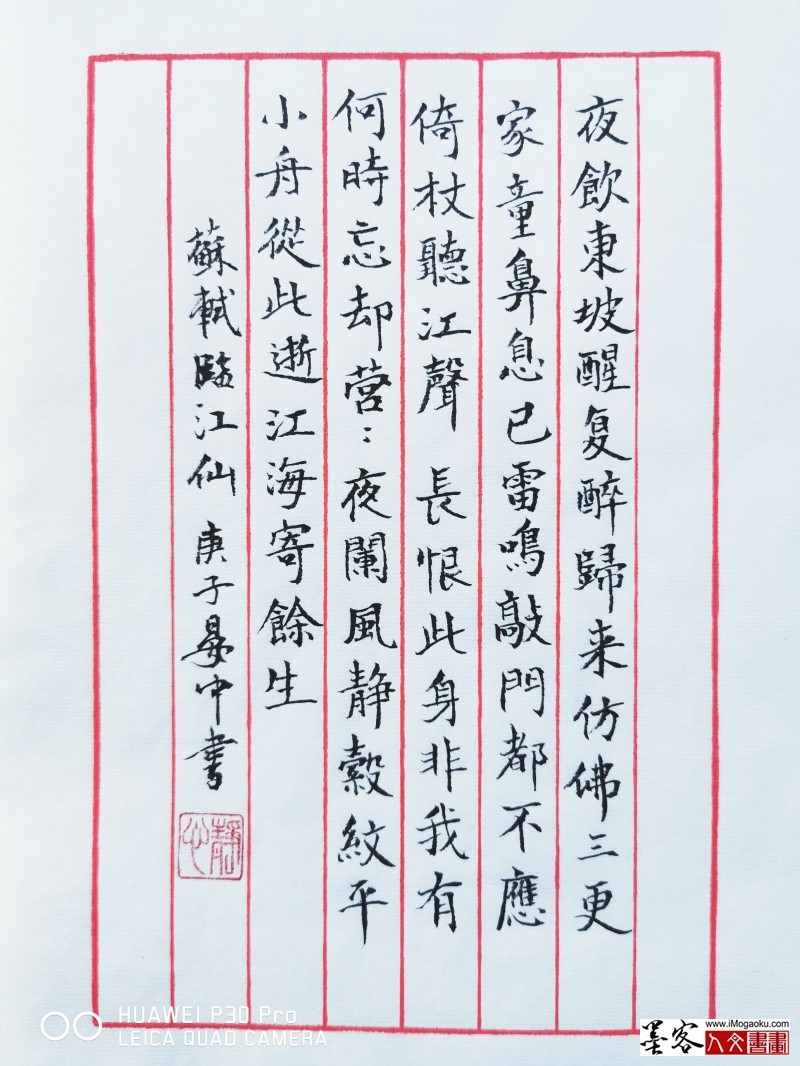 夜飲東坡醒复醉歸来仿佛三更
家童鼻息已雷鳴敲門都不應
倚杖聽江聲 長恨此身非我有
何時忘却营：夜闌風静縠紋平
小舟從此逝江海寄餘生
蘇軾臨江仙 庚子晏中書
靜心
HUAWEI P30 Pro
LEICA QUAD CAMERA
www.iMogaoku.com
墨客 人文書畫